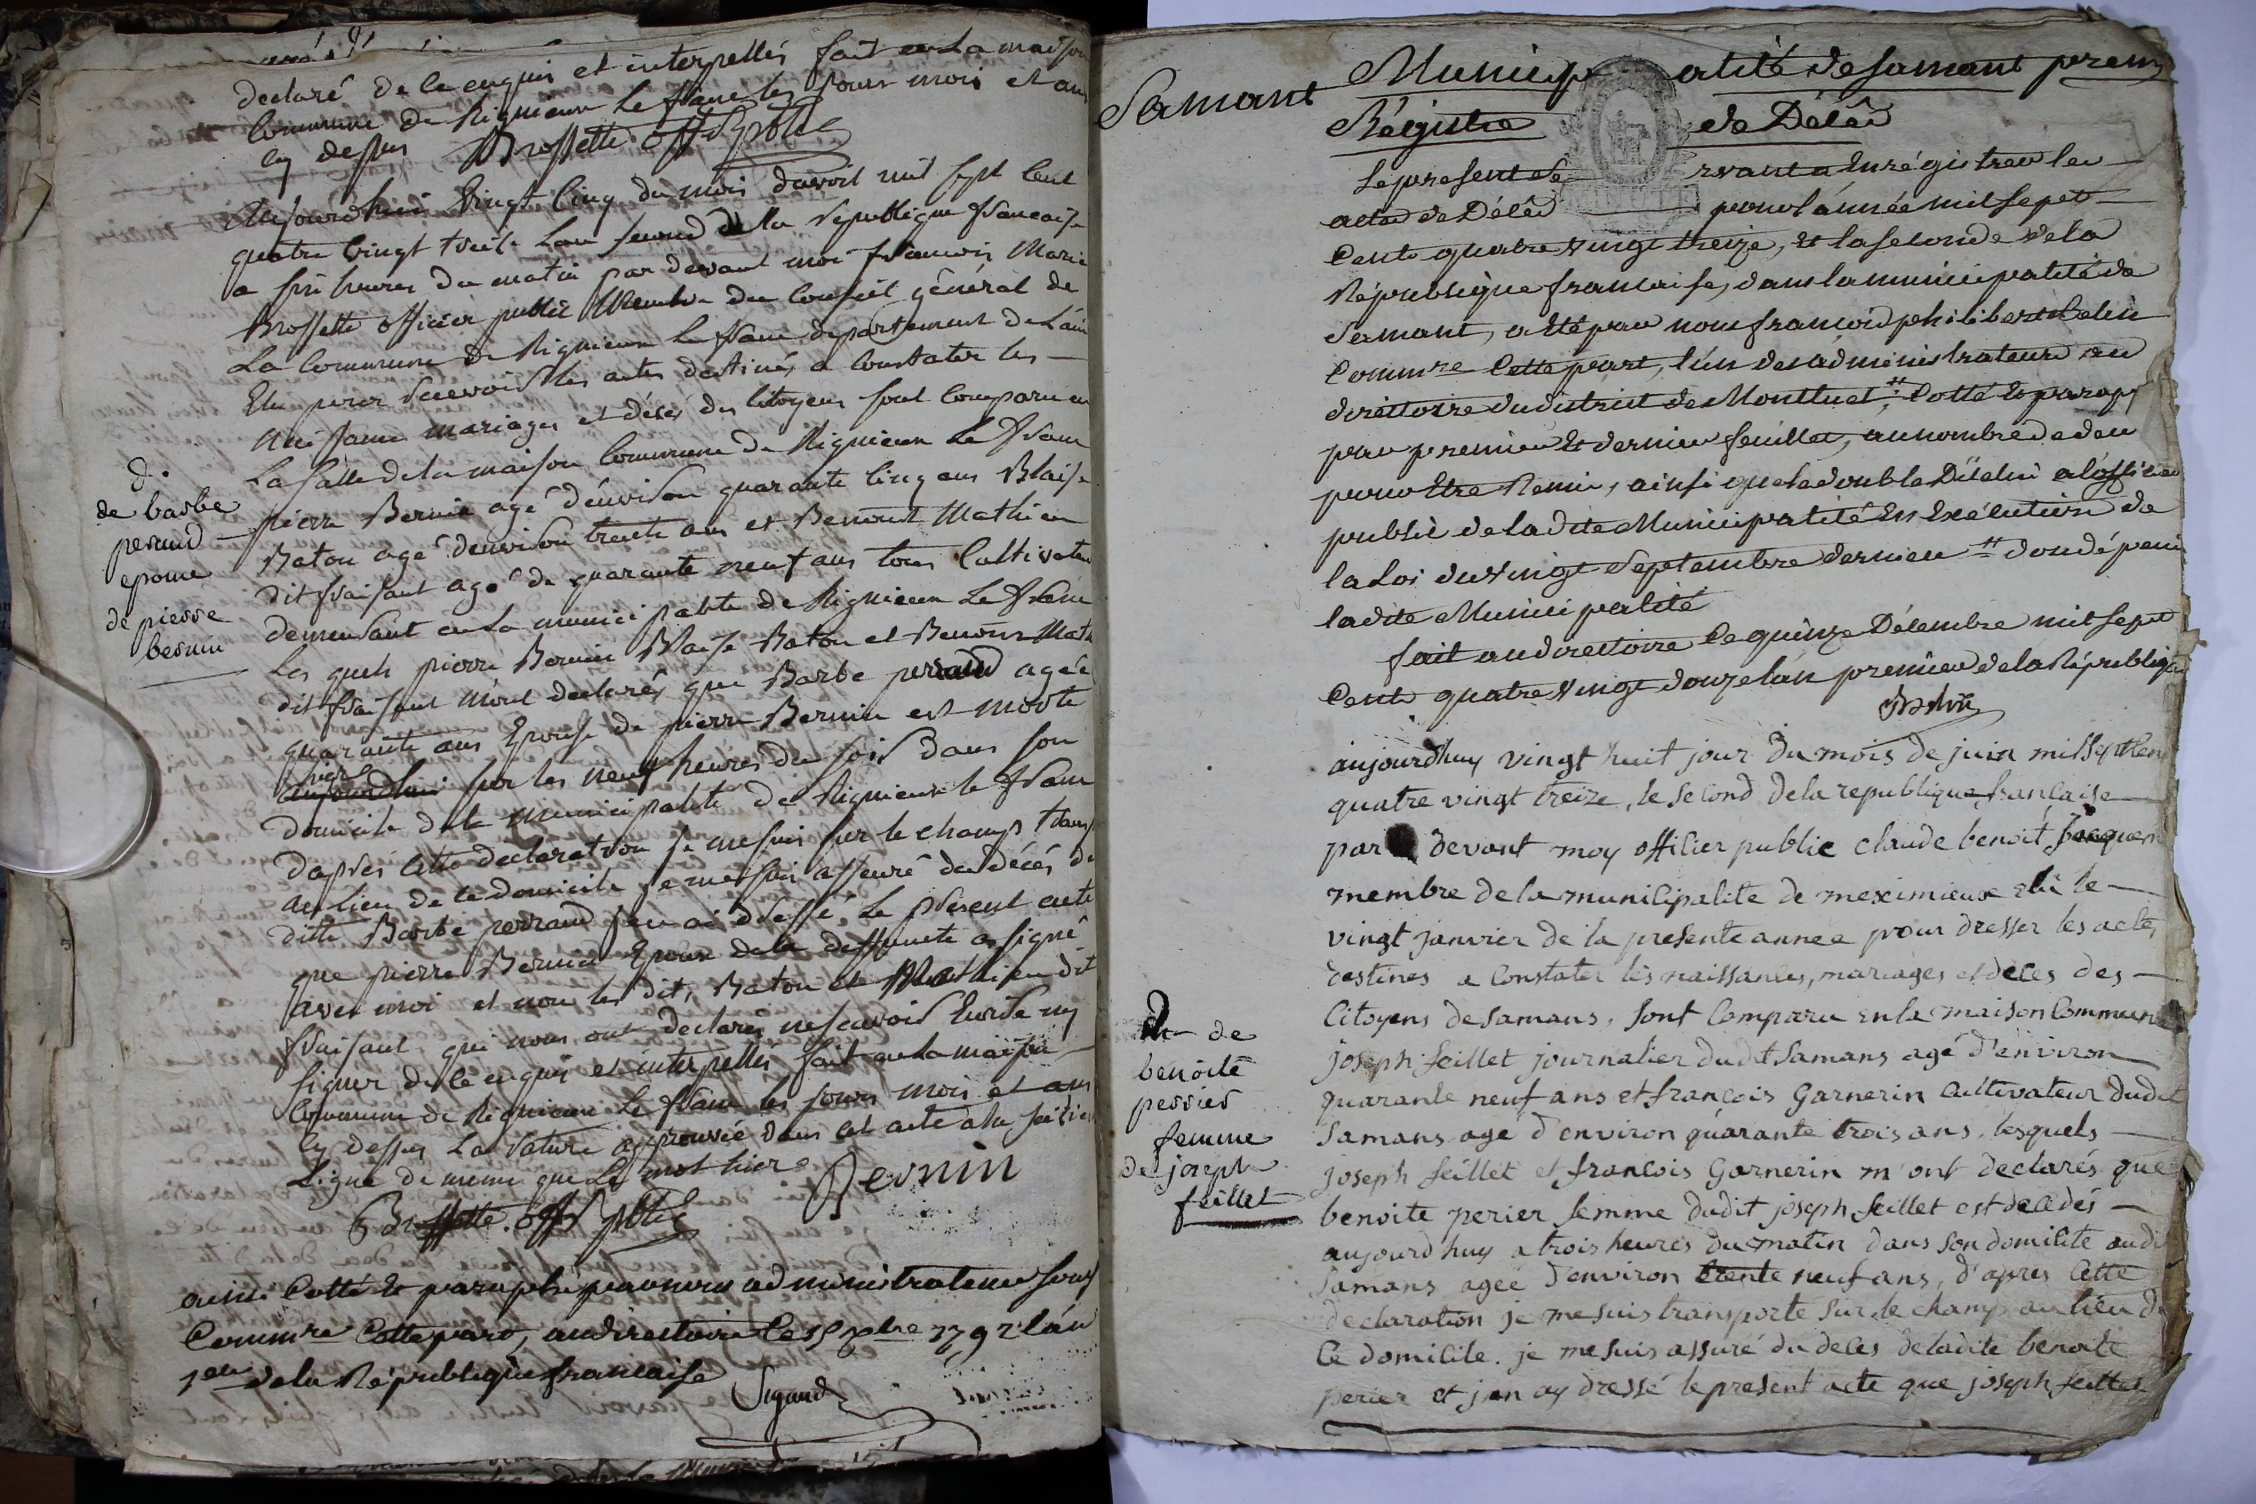 declaré de le enquis et interpellés fait en La maison
Commune de Rignieux Le franc les jours mois et ans
cy dessus Brossette off. public
Aujourdhui vingt cinq du mois davril mil sept cent
quatre vingt treize Lan second de la republique francaise
a six heures du matin par devant moi francois Marie
Brossette officier public Membre du Conseil général de
La Commune de Rignieux le franc departement de L'ain
Elu pour recevoir les actes destinés a Constater les
naissance mariages et décès des Citoyens sont Comparu en
La salle de la maison Commune de Rignieux Le franc
pierre Bernin agé d'environ quarante cinq ans Blaise
Baton agé denviron trente ans et Benoist Mathieu
dit fraisant agé de quarante neuf ans tous Cultivateur
demeurant en La municipalité de Rignieux Le franc
Les quels pierre Bernin Blaise Baton et Benoist Math
dit fraisant m'ont declarés que Barbe perraud agée
quarante ans Epouse de pierre Bernin est morte
hier
aujourdhui sur les neuf heures du soir dans son
domicile de la municipalité de Rignieux le franc
D'après cette declaration je me suis sur le champs trans
au lieu de le domicile je me suis assuré du décés de
ditte Barbe perraud jen ai dressé Le présent acte
que pierre Bernin Epoux de la deffunte a signé
avec moi et non les dits Baton et Mathieu dit
fraisant qui nous ont declarés ne scavoir Ecrire ny
signer de le enquis et interpellés fait en La maison
Commune de Rignieux Le franc les jours mois et ans
cy dessus La rature approuvée dans cet acte a la
Ligne de meme que Le mot hier
Bernin
Brossette off. public
d.
de barbe
peraud
epouse
de pierre
bernin
ainsi Cotté et paraphé par nous administrateur sous
Commre Cette part, au directoire Ce 15 Xbre 1792 l'án
1er de la République francaise
Sigaud
Samant Municipalité de Samant prem
Régistre de Décès
Le present servant a Enrégistrer les
actes de Décès pour l'année mil sept
Cents quatre vingt treize, et la seconde de la
République francaise, dans la municipalité de
Samant, a été par nous francois philibert Belin
Commre Cette part, l'ún des administrateurs au
directoire du district de Montluel, Cotté et paraph
par premier et dernier feuillet, au nombre de deu
pour Etre Remis, ainsi que le double D'icelui a l'officier
public de la dite Municipalité En Exécution de
la Loi du vingt Septembre dernier dont dépend
la dite Municipalité
fait au directoire Ce quinze Décembre mil sept
Cents quatre vingt douze l'án premier de la Républiq
Belin
aujourdhuy vingt huit jour du mois de juin mil sept cent
quatre vingt treize, le second de la republique francaise
par devant moy officier public claude benoit Jacquem
membre de la municipalite de meximieux elû le
vingt janvier de la presente annee pour dresser les actes
destines a Constater les naissances, mariages et deces des
Citoyens de Samans, sont Comparu en la maison Commune
joseph feillet journalier dudit Samans agé d'environ
quarante neuf ans et francois Garnerin Cultivateur dudit
Samans agé d'environ quarante trois ans, lesquels
joseph feillet et francois Garnerin m'ont declarés que
benoite perier femme dudit joseph feillet est decedés
aujourdhuy a trois heures du matin dans son domicile audit
Samans agée d'environ trente neuf ans, d'apres Cette
declaration je me suis transporté sur le champ au lieu de
Ce domicile. je me suis assuré du deces de ladite benoite
perier et jen ay dressé le present acte que joseph feillet
de
benoite
perrier
femme
de joseph
feillet